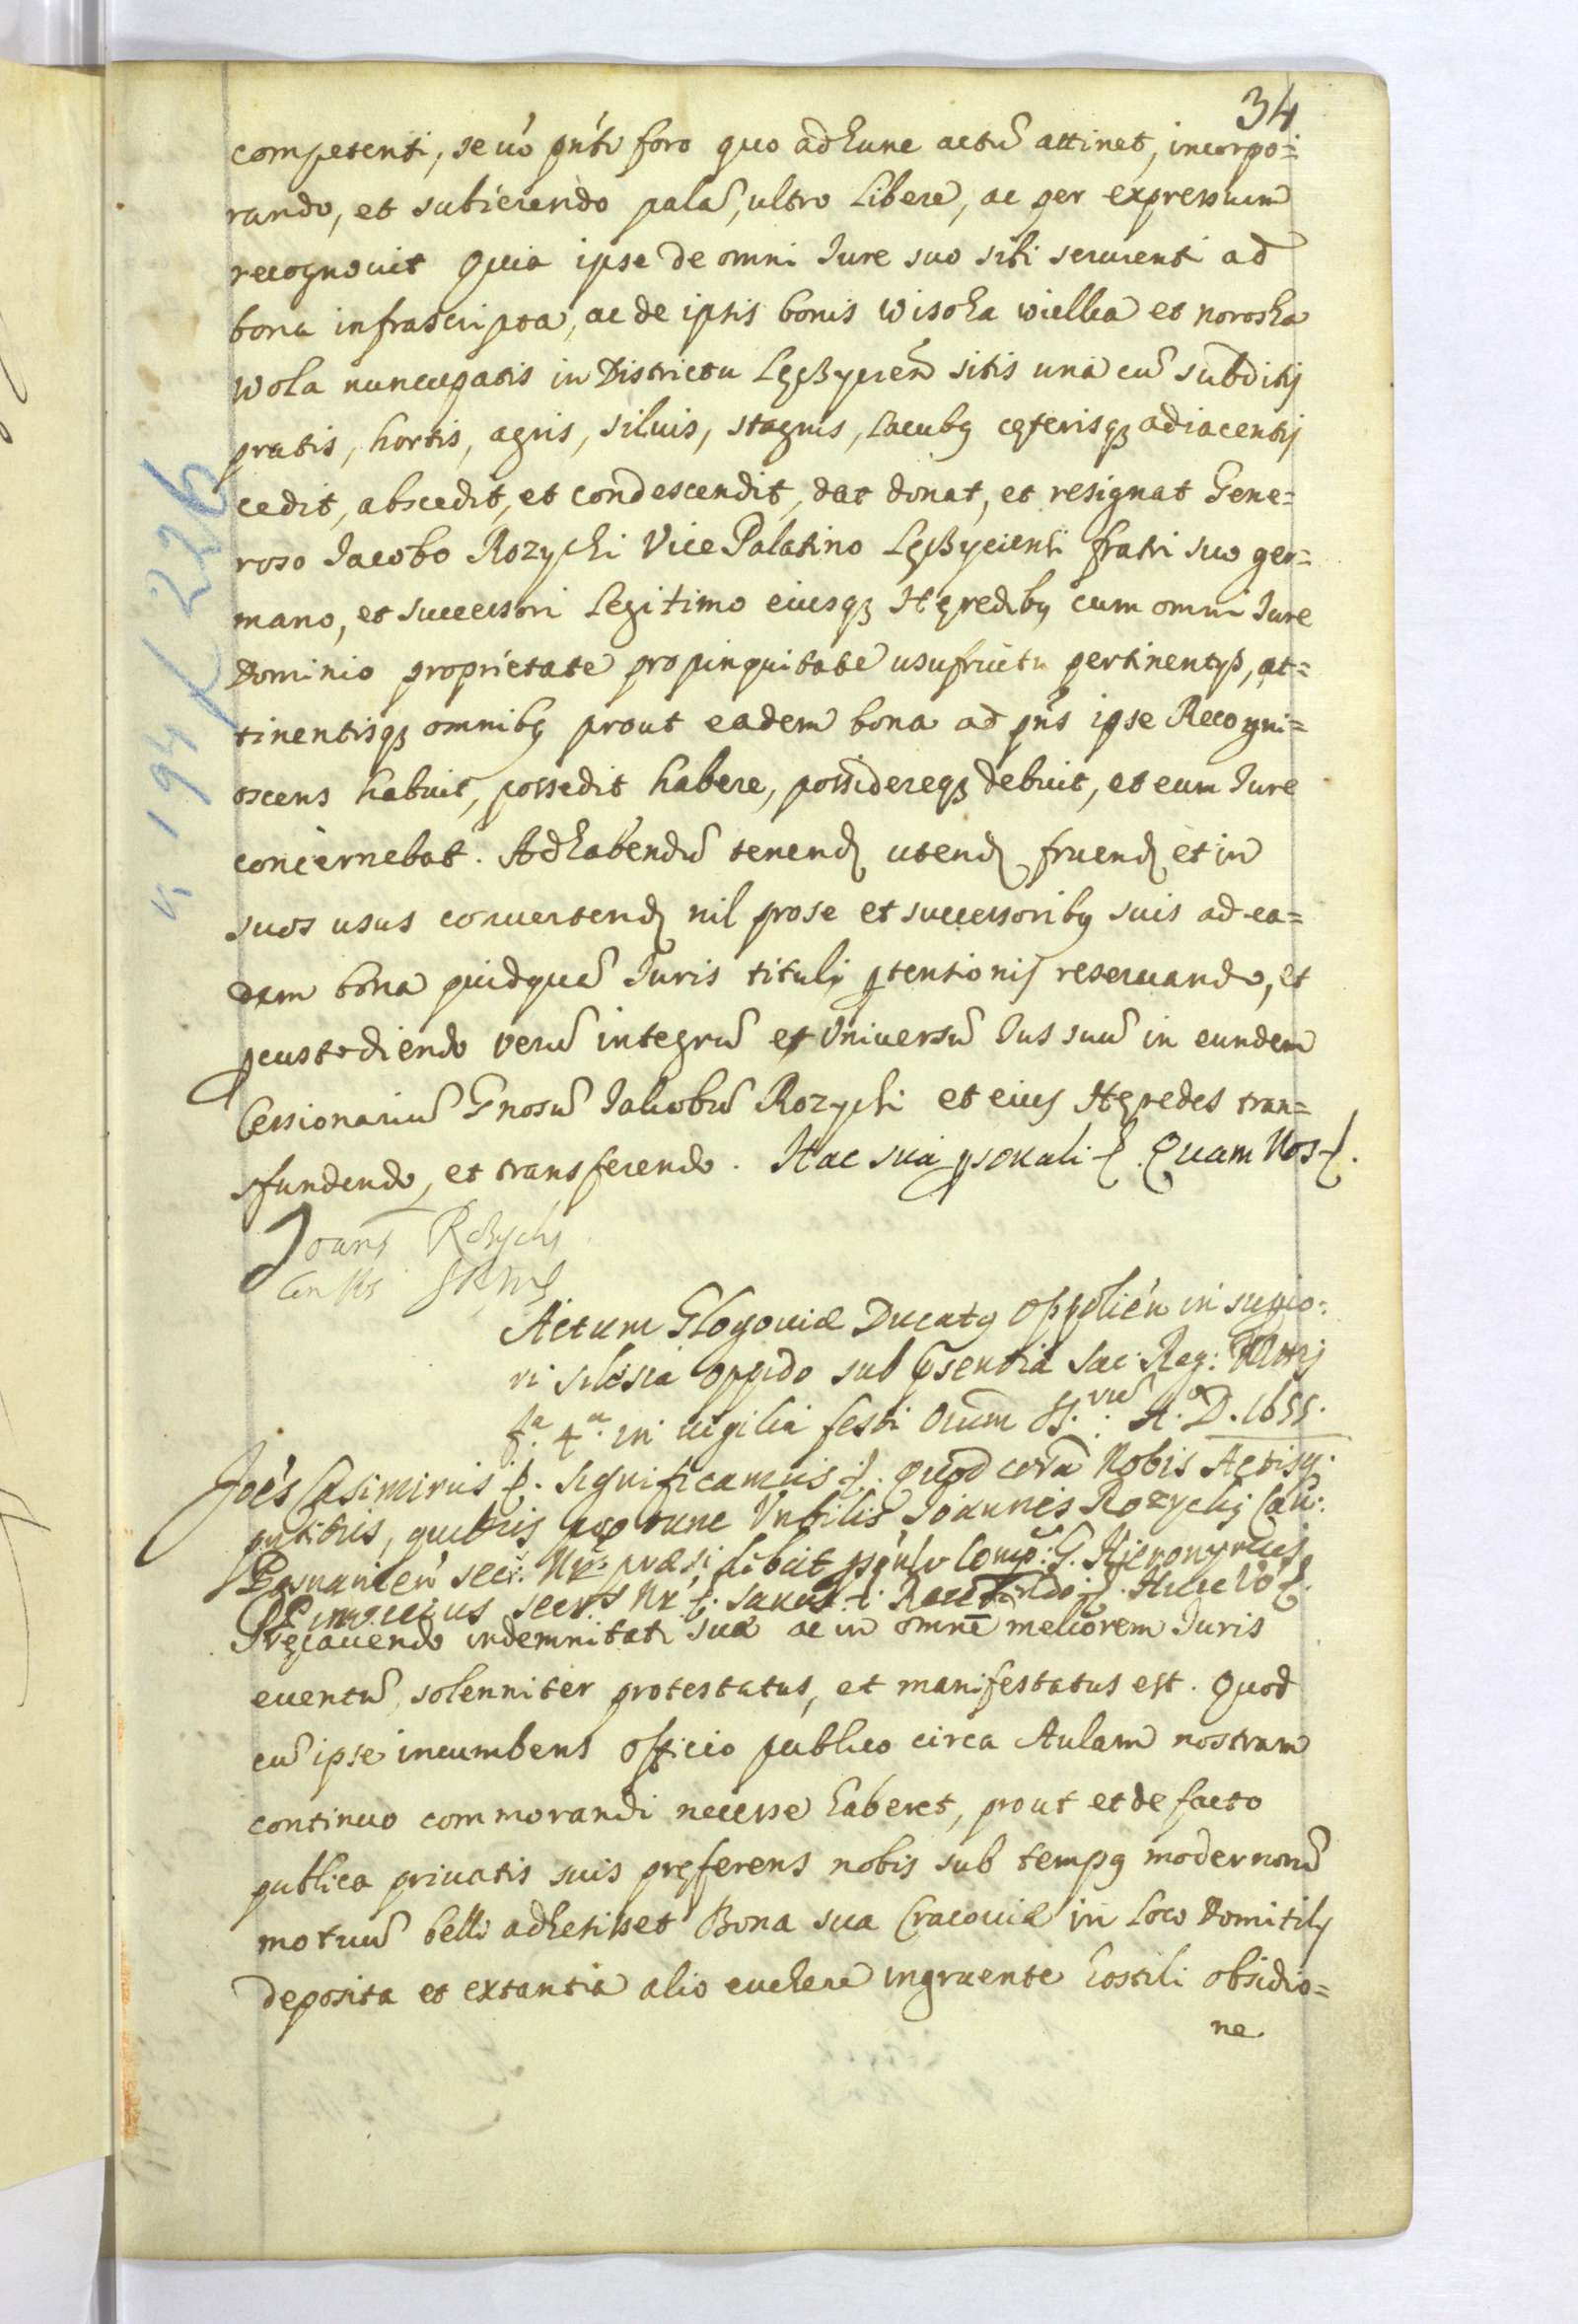 34
competenti, se vo pnti foro quo ad hunc actu attinet, incorpo=
rando, et subiiciendo pala, ultro libere, ac per expressum
recognovit Quia ipse de omni Iure suo sibi seruienti ad
bona infrascripta, ac de ipsis bonis Wisoka wielka et noroska
Wola nuncupatis in Districtu Lęczycien sitis una cu subditij
pratis, hortis, agris, siluis, stagnis, lacubq cęterisq adiacentij
cedit, abscedit, et condescendit, dat donat, et resignat Gene=
roso Iacobo Rozycki Vice Palatino Lęczyciensi fratri suo ger=
mano, et successori legitimo eiusq Hęredibq cum omni Iure
Dominio proprietate propinquitate usufructu pertinentijs, at=
tinentisq omnibq prout eadem bona ad pns ipse Recogni=
oscens habuit, possedit habere, possidereq debuit, et eum Iure
concernebat. Ad habendu tenend utend fruend et in
suos usus conuertend nil pro se et successoribq suis ad ea=
dem bona quidqua Iuris tituli ptentionis reseruando, et
pcustodiendo veru integru et Vniuersu Ius suu in eundem
Cessionariu Gnosu Iakobu Rozycki et eius Hęredes tran=
sfundendo, et transferendo. Hac sua psonali. Quam Nos.
Joans Rozycki
SRM
Actum Glogouiæ Ducatq Oppolien in supio:
ri Silesia oppido sub psentia Sac: Reg: Mttis
fa 4a in uigilia festi Oium SS. A. D. 1655.
Joes Casimirus. significamus. Quod cora Nobis Actisq.
pntibus, quibus pro tunc Nobilis Joannes Rozycky
Posnanien secr. Nr. præsidebat psonlr Comp: G. Hieronymus
Pinoccius secrs Nr.
Pręcauendo indemnitati suæ ac in omne meliorem Iuris
euentu, solenniter protestatus, et manifestatus est. Quod
cu ipse incumbens officio publico circa Aulam nostram
continuo commorandi necesse haberet, prout et de facto
publica priuatis suis pręferens nobis sub tempq modernoru
motuu belli adhesisset Bona sua Cracouiæ in loco Domicilij
deposita et extantia alio euehere ingruente hostili obsidio=
ne